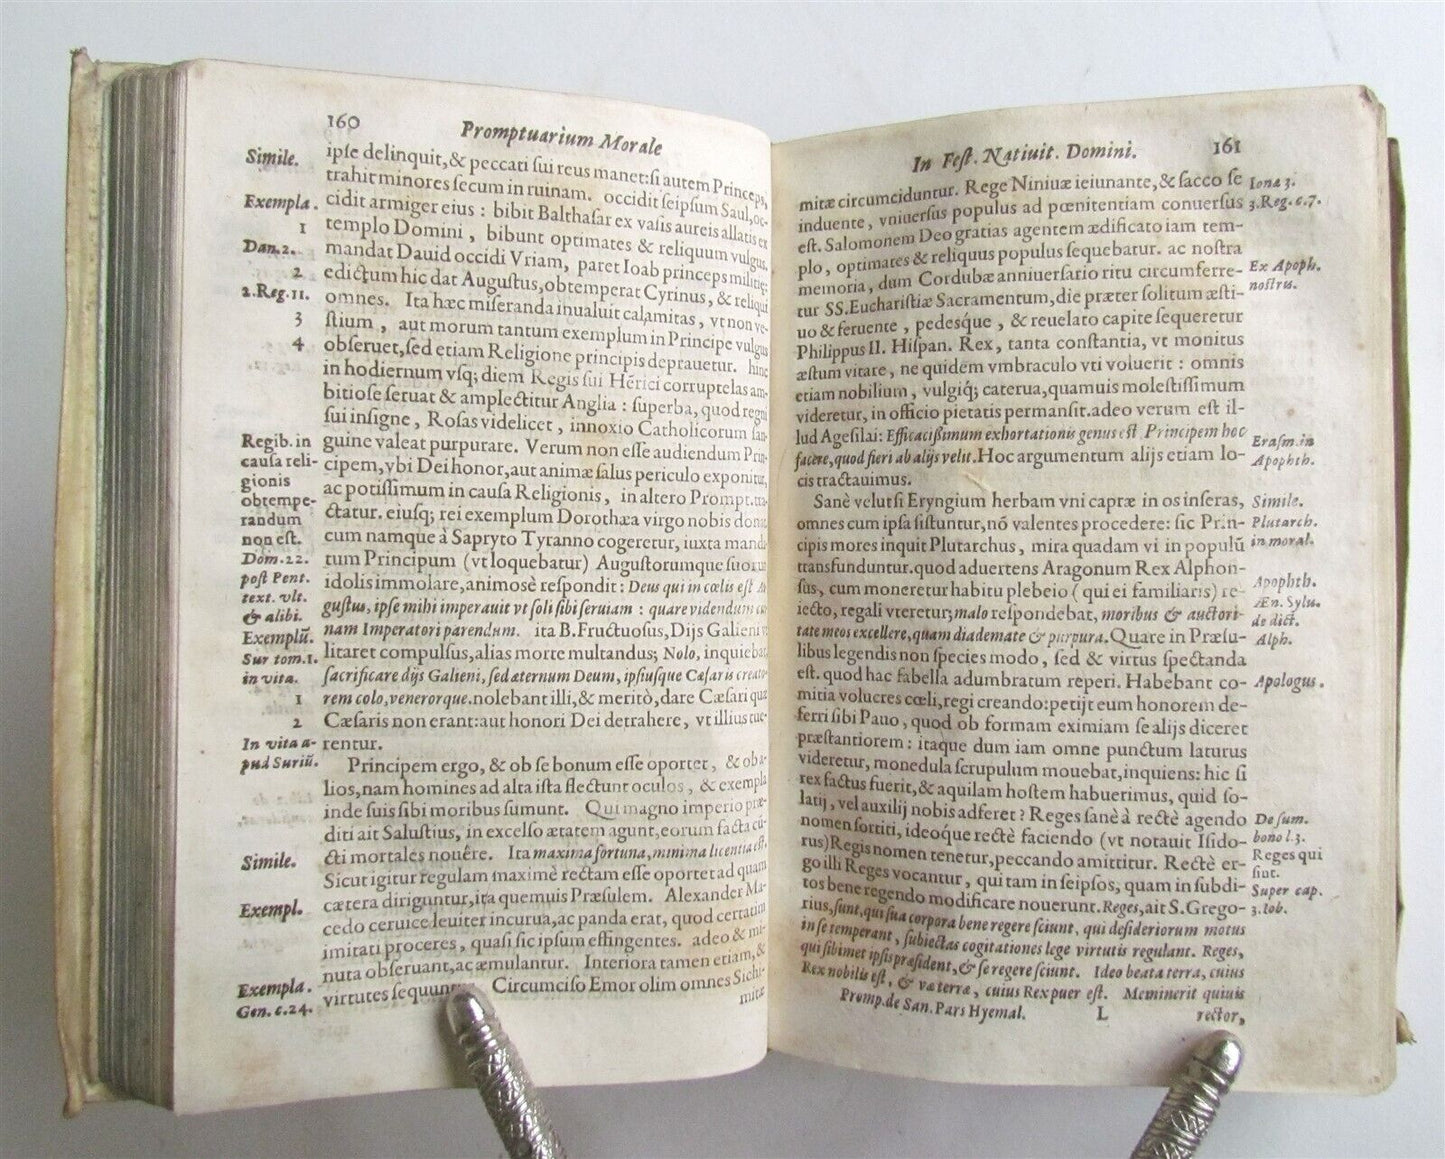 160
Promptuarium Morale
Simile.
ipſe delinquit,& peccati ſui reus manet:ſi autem Princeps,
trahit minores ſecum in ruinam. occidit ſeipſum Saul, oc-
Exempla.
cidit armiger eius : bibit Balthaſar ex vaſis aureis allatis ex
1
templo Domini , bibunt optimates & reliquum vulgus.
Dan.2.
mandat Dauid occidi Vriam, paret Ioab princeps militię;
2
edictum hic dat Auguſtus, obtemperat Cyrinus, & reliqui
2.Reg.11.
omnes. Ita hæc miſeranda inualuit calamitas, vt non ve-
3
ſtium , aut morum tantum exemplum in Principe vulgus
4
obſeruet, ſed etiam Religione principis deprauetur. hinc
in hodiernum vſq; diem Regis ſui Hẽrici corruptelas am-
bitioſe ſeruat & amplectitur Anglia : ſuperba, quod regni
ſui inſigne, Roſas videlicet , innoxio Catholicorum ſan-
Regib. in
guine valeat purpurare. Verum non eſſe audiendum Prin-
cauſa reli-
cipem, vbi Dei honor, aut animæ ſalus periculo exponitur,
gionis
ac potiſſimum in cauſa Religionis, in altero Prompt. tra-
obtempe-
ctatur. eiuſq; rei exemplum Dorothæa virgo nobis donat
randum
cum namque à Sapryto Tyranno cogeretur, iuxta manda-
non eſt.
Dom.22.
tum Principum (vt loquebatur) Auguſtorumque ſuorum
poſt Pent.
idolis immolare, animosè reſpondit : Deus qui in cœlis eſt Au
text. vlt.
guſtus, ipſe mihi imperauit vt ſoli ſibi ſeruiam : quare videndum cui
& alibi.
Exemplũ.
nam Imperatori parendum. ita B. Fructuoſus, Dijs Galieni
Sur tom.1.
litaret compulſus, alias morte multandus; Nolo, inquiebat
in vita.
ſacrificare dijs Galieni, ſed æternum Deum, ipſiuſque Cæſaris creato-
1
rem colo, venerorque. nolebant illi, & meritò, dare Cæſari quæ
2
Cæſaris non erant: aut honori Dei detrahere, vt illius tue-
In vita a-
rentur.
pud Suriũ.
Principem ergo, & ob ſe bonum eſſe oportet, & ob a-
lios, nam homines ad alta iſta flectunt oculos, & exempla
inde ſuis ſibi moribus ſumunt. Qui magno imperio præ-
diti ait Saluſtius, in excelſo ætatem agunt, eorum facta cũ-
Simile.
cti mortales nouêre. Ita maxima fortuna, minima licentia eſt.
Sicut igitur regulam maximè rectam eſſe oportet ad quam
Exempl.
cætera diriguntur, ita quemuis Præſulem. Alexander Ma-
cedo ceruice leuiter incurua, ac panda erat, quod certatim
imitati proceres, quaſi ſic ipſum effingentes. adeo & mi-
nuta obſeruant, ac æmulantur. Interiora tamen etiam, &
Exempla.
virtutes ſequuntur. Circumciſo Emor olim omnes Sichi-
Gen. c.24.
mitæ
In Feſt. Natiuit. Domini.
161
mitæ circumciduntur. Rege Niniuæ ieiunante, & ſacco ſe
Iona 3.
induente, vniuerſus populus ad pœnitentiam conuerſus
3.Reg.c.7.
eſt. Salomonem Deo gratias agentem ædificato iam tem-
plo, optimates & reliquus populus ſequebatur. ac noſtra
Ex Apoph.
memoria, dum Cordubæ anniuerſario ritu circumferre-
noſtris.
tur SS. Euchariſtiæ Sacramentum, die præter ſolitum æſti-
uo & feruente , pedeſque , & reuelato capite ſequeretur
Philippus II. Hiſpan. Rex, tanta conſtantia, vt monitus
æſtum vitare, ne quidem vmbraculo vti voluerit : omnis
etiam nobilium , vulgiq; caterua, quamuis moleſtiſſimum
videretur, in officio pietatis permanſit. adeo verum eſt il-
lud Ageſilai: Efficacißimum exhortationis genus eſt Principem hoc
Eraſm. in
facere, quod fieri ab alijs velit. Hoc argumentum alijs etiam lo-
Apophth.
cis tractauimus.
Sanè velut ſi Eryngium herbam vni capræ in os inſeras,
Simile.
omnes cum ipſa ſiſtuntur, nõ valentes procedere: ſic Prin-
Plutarch.
cipis mores inquit Plutarchus, mira quadam vi in populũ
in moral.
transfunduntur. quod aduertens Aragonum Rex Alphon-
Apophth.
ſus, cum moneretur habitu plebeio ( qui ei familiaris) re-
Æn. Sylu.
iecto, regali vteretur; malo reſpondebat, moribus & auctori-
de dict.
tate meos excellere, quam diademate & purpura. Quare in Præſu-
Alph.
libus legendis non ſpecies modo, ſed & virtus ſpectanda
eſt. quod hac fabella adumbratum reperi. Habebant co-
Apologus.
mitia volucres cœli, regi creando: petijt eum honorem de-
ferri ſibi Pauo, quod ob formam eximiam ſe alijs diceret
præſtantiorem : itaque dum iam omne punctum laturus
videretur, monedula ſcrupulum mouebat, inquiens: hic ſi
rex factus fuerit, & aquilam hoſtem habuerimus, quid ſo-
latij, vel auxilij nobis adferet ? Reges ſanè à rectè agendo
De ſum.
nomen ſortiti, ideoque rectè faciendo (vt notauit Iſido-
bono l.3.
rus) Regis nomen tenetur, peccando amittitur. Rectè er-
Reges qui
go illi Reges vocantur, qui tam in ſeipſos, quam in ſubdi-
ſint.
tos bene regendo modificare nouerunt. Reges, ait S. Grego-
Super cap.
rius, ſunt, qui ſua corpora bene regere ſciunt, qui deſideriorum motus
3. Iob.
in ſe temperant, ſubiectas cogitationes lege virtutis regulant. Reges,
qui ſibimet ipſis præſident, & ſe regere ſciunt. Ideo beata terra, cuius
Rex nobilis eſt, & væ terræ, cuius Rex puer eſt. Meminerit quiuis
Promp. de San. Pars Hyemal.
L
rector,